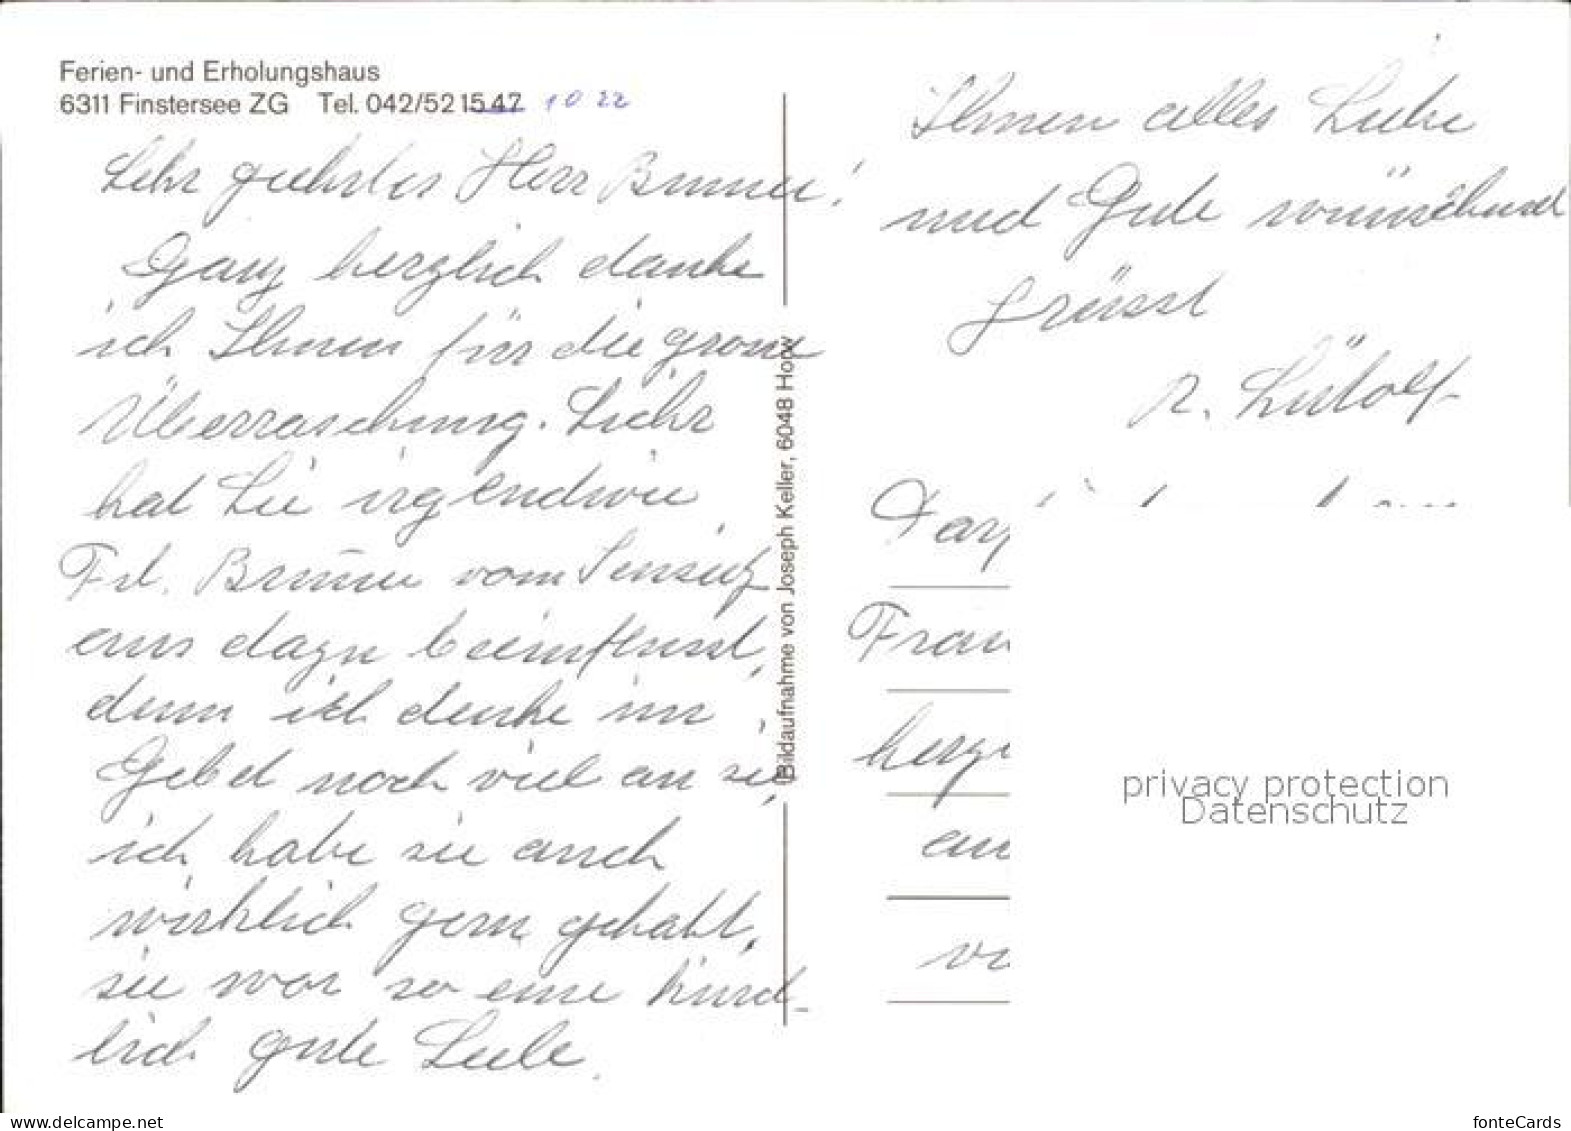 Ferien- und Erholungshaus
6311 Finstersee ZG Tel. 042/52 15 47 10 22
Sehr geehrter Herr Brunner!
Ganz herzlich danke
ich Ihnen für die grosse
Überraschung. Sicher
hat Sie irgendwie
Frl. Brunner vom Jenseitz
aus dazu beeinflusst,
denn ich denke im
Gebet noch viel an sie,
ich habe sie auch
wirklich gern gehabt,
sie war so eine kind-
lich gute Seele.
Bildaufnahme von Joseph Keller, 6048 Horw
Ihnen alles Liebe
und Gute wünschend
grüsst
R. Lütolf
Frau
herzl
privacy protection
Datenschutz
www.delcampe.net
fonteCards